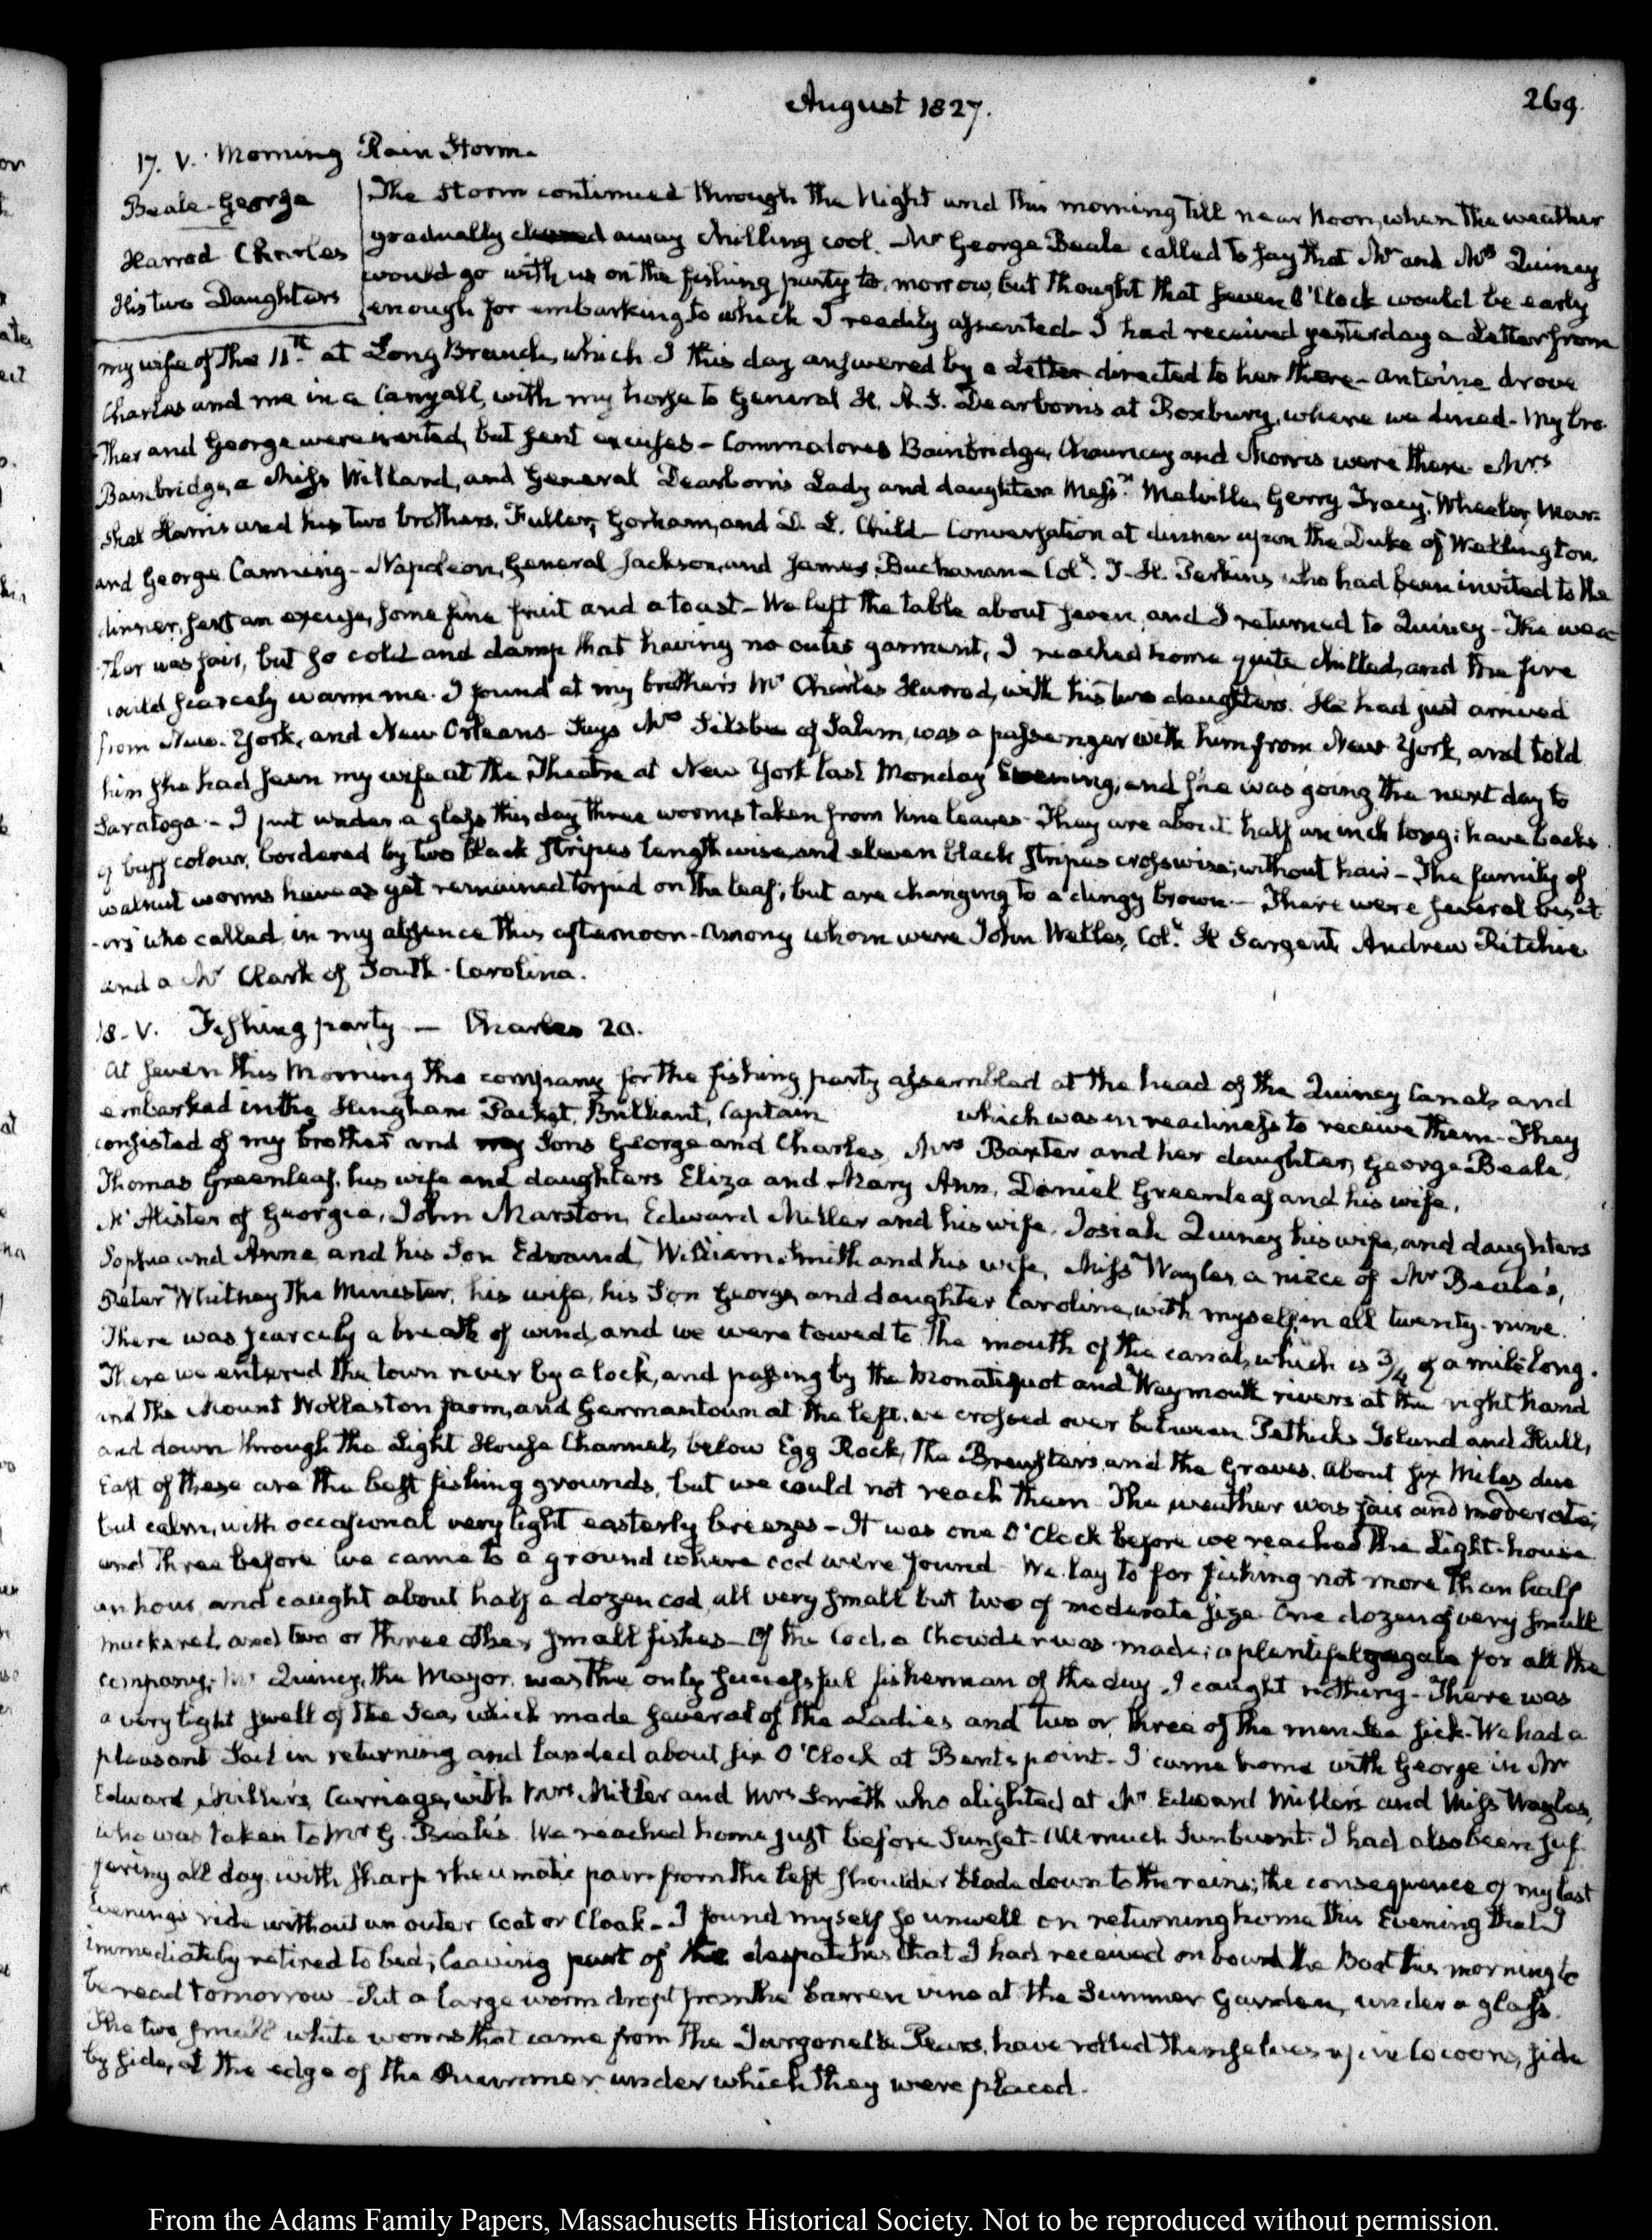 August 1827.
269.
17. V. Morning Rain Storm.
Beale - George
Harrod Charles
His two Daughters
The Storm continued through the Night and this morning till near Noon, when the weather
gradually cleared away chilling cool. Mr George Beale called to say that Mr and Mrs Quincy
would go with us on the fishing party to-morrow, but thought that seven O'Clock would be early
enough for embarking to which I readily assented. I had received yesterday a Letter from
my wife of the 11th. at Long Branch, which I this day answered by a Letter directed to her there - Antoine drove
Charles and me in a Carryall, with my horse to General H. A. S. Dearborn's at Roxbury, where we dined - My bro-
ther and George were invited, but sent excuses - Commodores Bainbridge, Chauncey and Morris were there Mrs
Bainbridge, a Miss Willard, and General Dearborn's Lady and daughter Messrs. Melville, Gerry, Tracy, Wheeler, Mar-
shal Harris and his two brothers, Fuller, Gorham, and D. L. Child - Conversation at dinner upon the Duke of Wellington
and George Canning - Napoleon, General Jackson, and James Buchanan - Coll. T. H. Perkins who had been invited to the
dinner, sent an excuse, some fine fruit and a toast - We left the table about seven, and I returned to Quincy - The wea-
ther was fair, but so cold and damp that having no outer garment, I reached home quite chilled, and the fire
could scarcely warm me. I found at my brother's Mr Charles Harrod, with his two daughters. He had just arrived
from New-York, and New Orleans - Says Mrs Silsbee of Salem, was a passenger with him from New York, and told
him she had seen my wife at the Theatre at New York last Monday Evening, and she was going the next day to
Saratoga. - I put under a glass this day three worms taken from Vine leaves. They are about half an inch long; have backs
of buff colour, bordered by two black stripes lengthwise, and eleven black stripes crosswise; without hair - The family of
walnut worms have as yet remained torpid on the leaf; but are changing to a dingy brown. - There were several visit-
-ors who called in my absence this afternoon. Among whom were John Welles, Coll. H Sargent, Andrew Ritchie
and a Mr Clark of South-Carolina.
18. V. Fishing party — Charles 20.
At seven this Morning the company for the fishing party assembled at the head of the Quincy Canal, and
embarked in the Hingham Packet, Brilliant, Captain which was in readiness to receive them - They
consisted of my brother and my Sons George and Charles, Mrs Baxter and her daughter, George Beale,
Thomas Greenleaf, his wife and daughters Eliza and Mary Ann, Daniel Greenleaf and his wife,
McAlister of Georgia, John Marston, Edward Miller and his wife, Josiah Quincy his wife, and daughters
Sophia and Anna and his Son Edmund, William Smith and his wife, Miss Wayles, a niece of Mr Beale's,
Peter Whitney the Minister, his wife, his Son George, and daughter Caroline, with myself, in all twenty-nine.
There was scarcely a breath of wind, and we were towed to the mouth of the canal, which is 3/4 of a mile long.
There we entered the town river by a lock, and passing by the Monatiquot and Weymouth rivers at the right hand
and the Mount Wollaston farm, and Germantown at the left, we crossed over between Pethick's Island and Hull,
and down through the Light House Channel, below Egg Rock, the Brewsters, and the Graves. About six Miles due
East of these are the best fishing grounds, but we could not reach them - The weather was fair and moderate;
but calm, with occasional very light easterly breezes - It was one O'Clock before we reached the Light-house
and three before we came to a ground where cod were found - We lay to for fishing not more than half
an hour, and caught about half a dozen cod, all very small but two of moderate size. One dozen of very small
mackarel, and two or three other small fishes - Of the Cod, a Chowder was made; a plentiful regale for all the
company; Mr Quincy, the Mayor, was the only successful fisherman of the day, I caught nothing - There was
a very light swell of the Sea, which made several of the Ladies and two or three of the men Sea sick. We had a
pleasant Sail in returning and landed about six O'Clock at Bent's point. I came home with George in Mr
Edward Miller's Carriage, with Mrs Miller and Mrs Smith who alighted at Mr Edward Miller's and Miss Wayles,
who was taken to Mr G. Beale's. We reached home just before Sunset - All much Sunburnt. I had also been suf-
fering all day with sharp rheumatic pain from the left shoulder blade down to the reins; the consequence of my last
Evening's ride without an outer Coat or Cloak - I found myself so unwell on returning home this Evening that I
immediately retired to bed; leaving part of the despatches that I had received on board the Boat this morning to
be read tomorrow - Put a large worm dropt from the barren vine at the Summer Garden, under a glass.
The two small white worms that came from the Jargonelle Pears, have rolled themselves up in cocoons, side
by side, at the edge of the rummer under which they were placed.
From the Adams Family Papers, Massachusetts Historical Society. Not to be reproduced without permission.